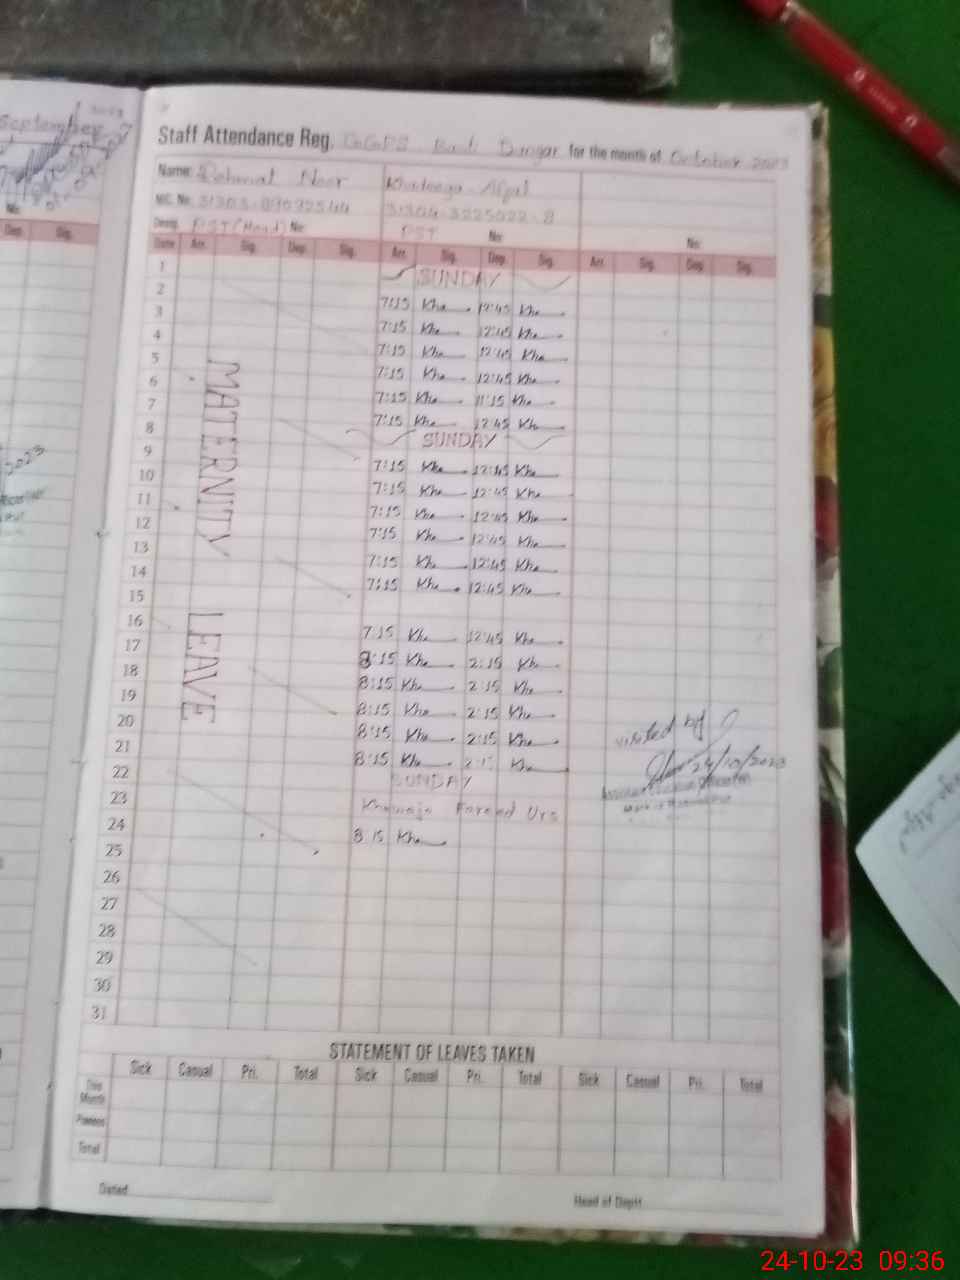 September
Staff Attendance Reg. GGPS Basti Dangar for the month of October 2023
Name: Rehmat Noor Khadeeja Afzal
NIC. No. 31304-3225022-8
Desig. PST (Head) No: PST No: No:
Dep. Sig.
Date Arr. Sig. Dep. Sig. Arr. Sig. Dep. Sig. Arr. Sig. Dep. Sig.
1 SUNDAY
2 7:15 Kha 12:45 Kha
3 7:15 Kha 12:45 Kha
4 7:15 Kha 12:45 Kha
5 7:15 Kha 12:45 Kha
6 7:15 Kha 11:15 Kha
7 7:15 Kha 12:45 Kha
8 SUNDAY
9 7:15 Kha 12:45 Kha
10 7:15 Kha 12:45 Kha
11 7:15 Kha 12:45 Kha
12 7:15 Kha 12:45 Kha
13 7:15 Kha 12:45 Kha
14 7:15 Kha 12:45 Kha
15
16 7:15 Kha 12:45 Kha
17 8:15 Kha 2:15 Kha
18 8:15 Kha 2:15 Kha
19 8:15 Kha 2:15 Kha
20 8:15 Kha 2:15 Kha
21 8:15 Kha 2:15 Kha
22 SUNDAY
23 Khawaja Fareed Urs
24 8:15 Kha
25
26
27
28
29
30
31
MATERNITY LEAVE
visited by
24/10/2023
STATEMENT OF LEAVES TAKEN
Sick Casual Pri. Total Sick Casual Pri. Total Sick Casual Pri. Total
This Month
Previous
Total
Dated
Head of Deptt.
24-10-23 09:36